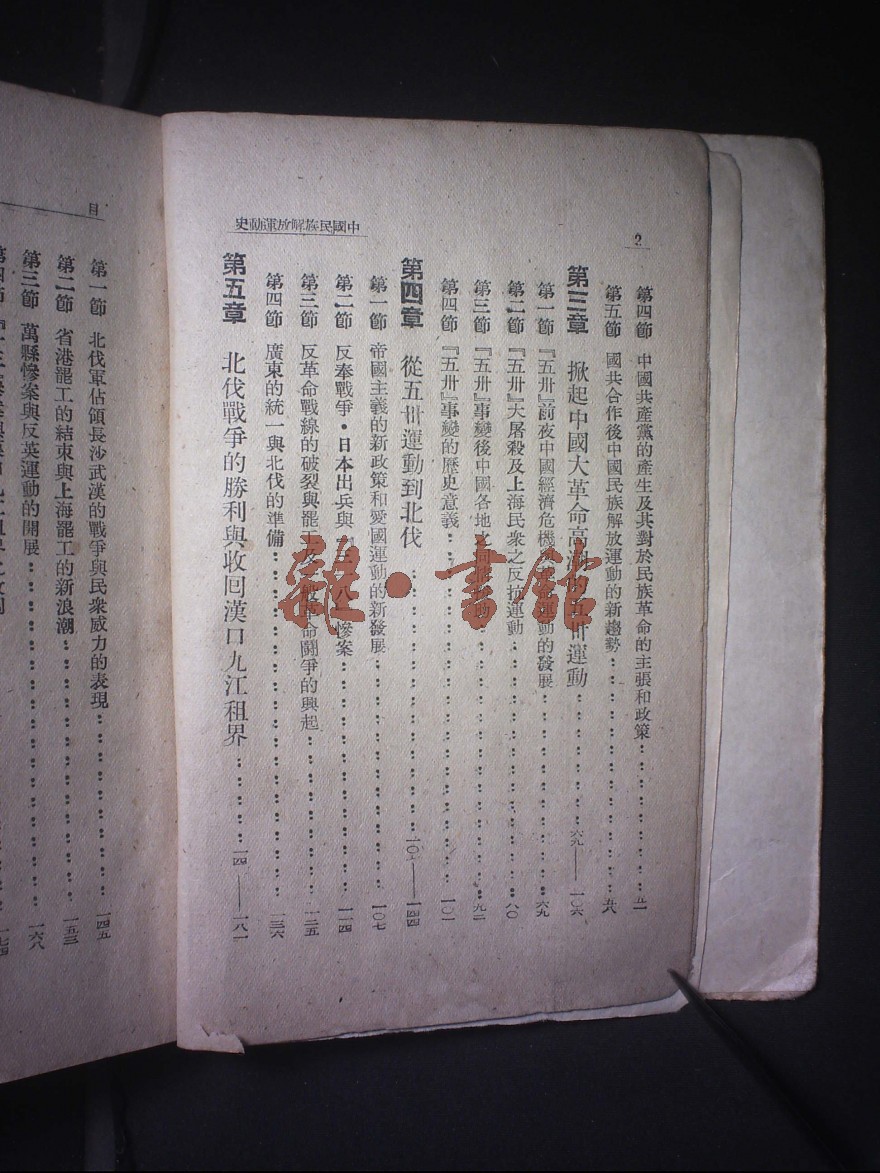 2
中國民族解放運動史
第四節 中國共產黨的產生及其對於民族革命的主張和政策 五一
第五節 國共合作後中國民族解放運動的新趨勢 五八
第三章 掀起中國大革命高潮的五卅運動 六九——一〇六
第一節 『五卅』前夜中國經濟危機 運動的發展 六九
第二節 『五卅』大屠殺及上海民衆之反抗運動 八〇
第三節 『五卅』事變後中國各地之同情援助 九二
第四節 『五卅』事變的歷史意義 一〇二
第四章 從五卅運動到北伐 一〇七——一四四
第一節 帝國主義的新政策和愛國運動的新發展 一〇七
第二節 反奉戰爭·日本出兵與『三一八』慘案 一一四
第三節 反革命戰線的破裂與罷工及一般革命鬭爭的興起 一二五
第四節 廣東的統一與北伐的準備 一三六
第五章 北伐戰爭的勝利與收回漢口九江租界 一八一
目
第一節 北伐軍佔領長沙武漢的戰爭與民衆威力的表現 一四五
第二節 省港罷工的結束與上海罷工的新浪潮 一五三
第三節 萬縣慘案與反英運動的開展 一六八
第四節
雜·書館